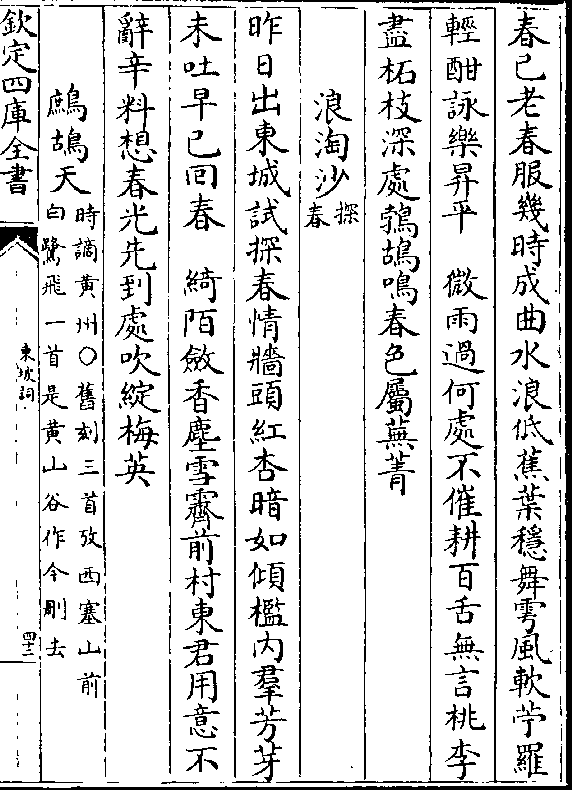 春已老春服幾時成曲水浪低蕉葉穩舞雩風軟苧羅
輕酣詠樂昇平　微雨過何處不催耕百舌無言桃李
盡柘枝深處鵓鴣鳴春色屬蕪菁
浪淘沙探春
昨日出東城試探春情牆頭紅杏暗如傾檻内羣芳芽
未吐早已回春　綺陌斂香塵雪霽前村東君用意不
辭辛料想春光先到處吹綻梅英
鷓鴣天時謫黄州○舊刻三首攷西塞山前
白鷺飛一首是黄山谷作今刪去
欽定四庫全書
東坡詞
四十二